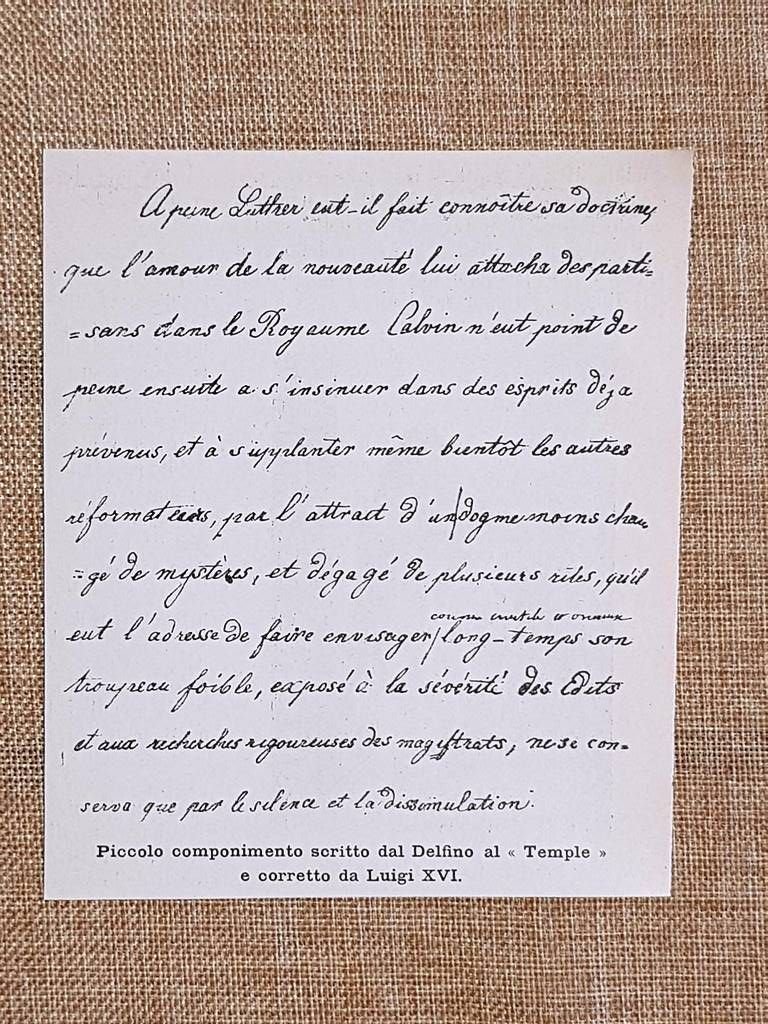 A peine Luther eut-il fait connoître sa doctrine,
que l'amour de la nouveauté lui attacha des parti=
=sans dans le Royaume Calvin n'eut point de
peine ensuite a s'insinuer dans des esprits déja
prévenus, et à supplanter même bientôt les autres
réformateurs, par l'attrait d'un dogme moins char
=gé de mystères, et dégagé de plusieurs rites, qu'il
comme inutile et onéreux
eut l'adresse de faire envisager long-temps son
troupeau foible, exposé à la sévérité des Edits
et aux recherches rigoureuses des magistrats, ne se con=
serva que par le silence et la dissimulation.
Piccolo componimento scritto dal Delfino al « Temple »
e corretto da Luigi XVI.